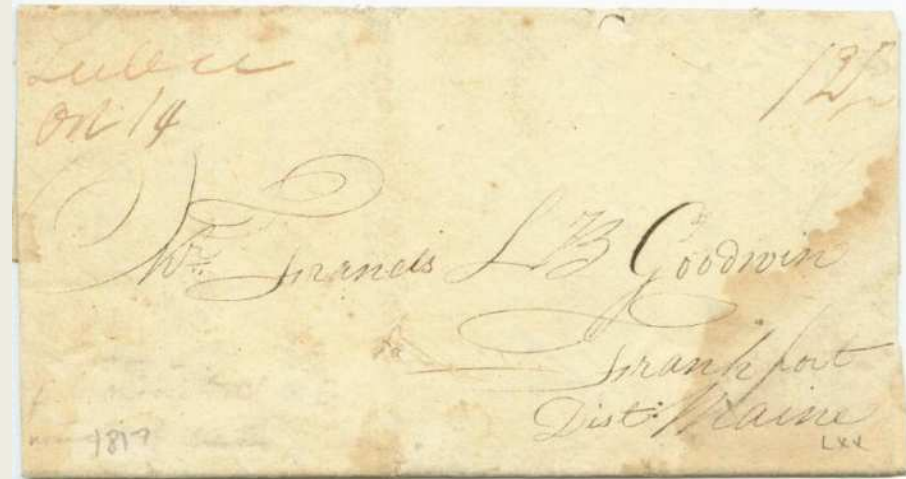 Lubec
Oct 14
12½
Mr. Francis L B Goodwin
Frankfort
Dist: Maine
1817
LXX